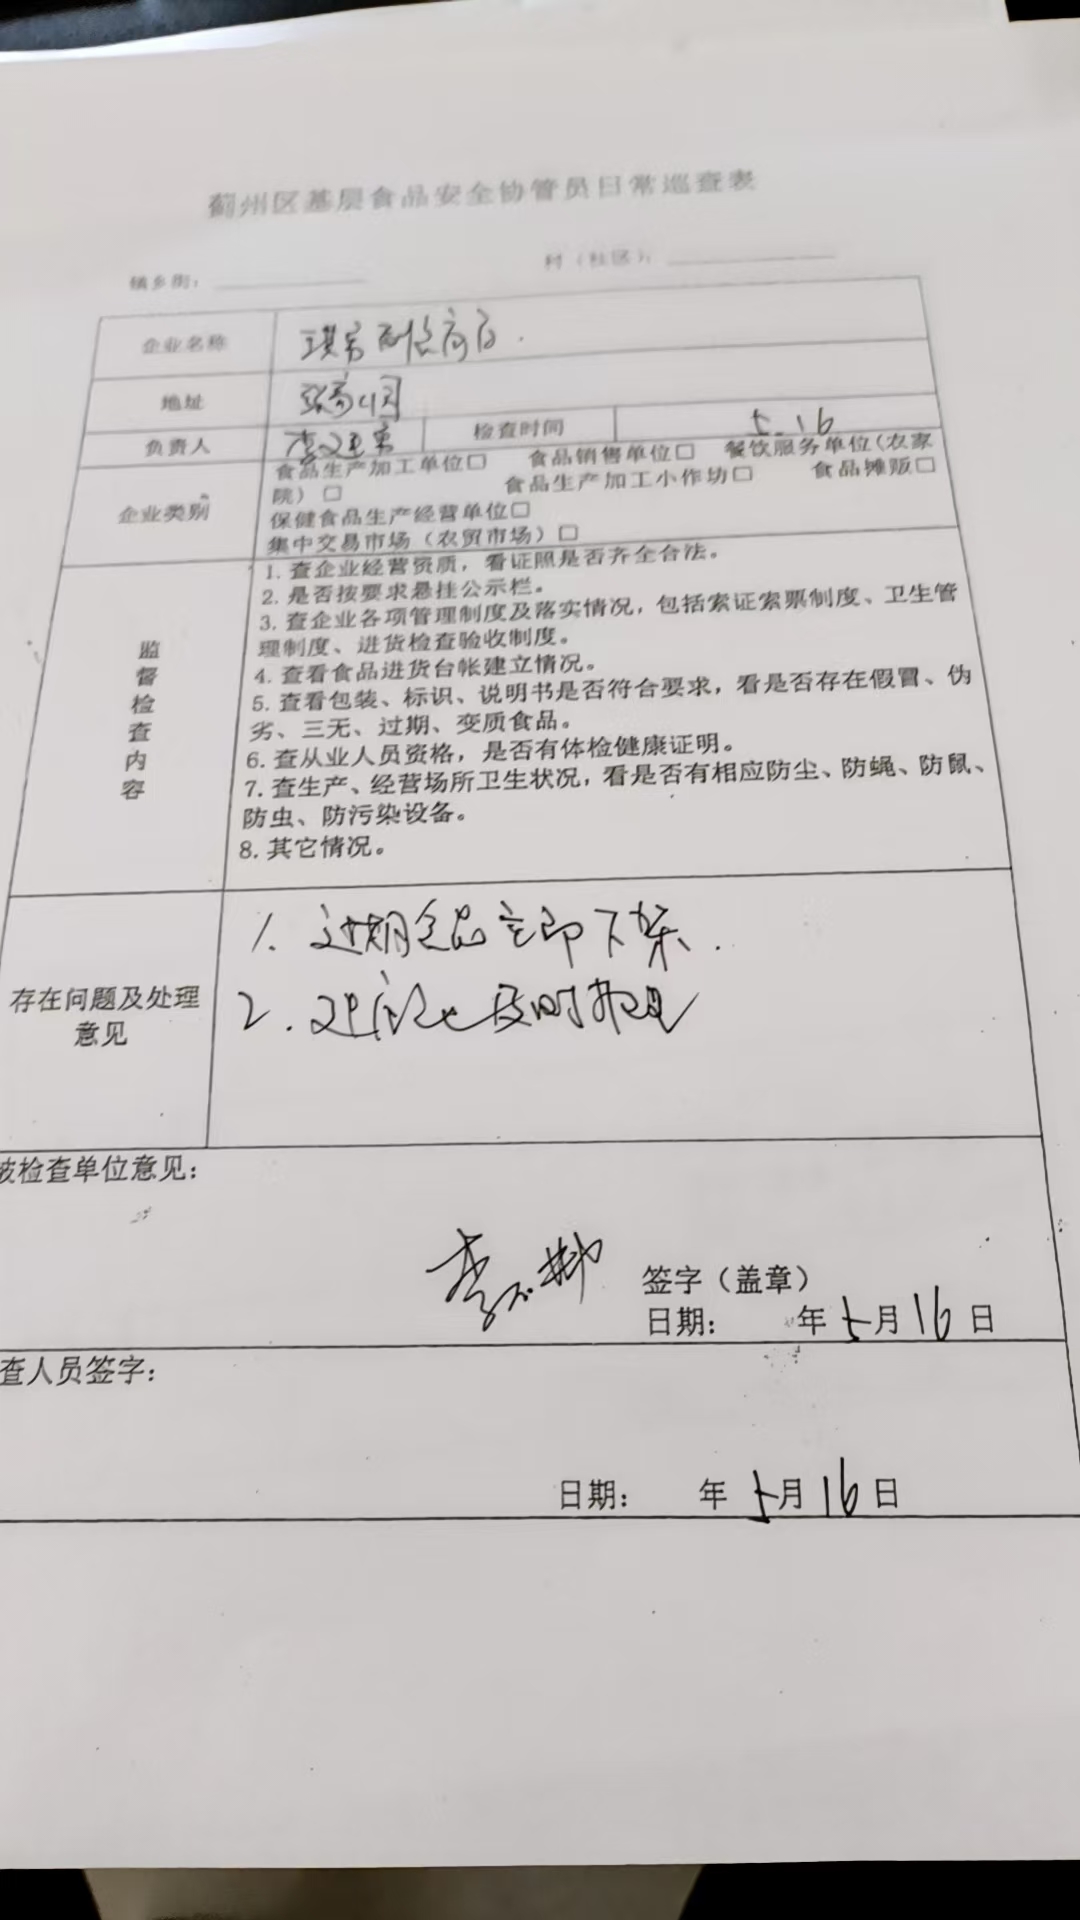 蓟州区基层食品安全协管员日常巡查表
镇乡街：
村（社区）：
企业名称
地址
负责人 检查时间 5.16
企业类别
食品生产加工单位□ 食品销售单位□ 餐饮服务单位（农家
院）□ 食品生产加工小作坊□ 食品摊贩□
保健食品生产经营单位□
集中交易市场（农贸市场）□
监督检查内容
1. 查企业经营资质，看证照是否齐全合法。
2. 是否按要求悬挂公示栏。
3. 查企业各项管理制度及落实情况，包括索证索票制度、卫生管
理制度、进货检查验收制度。
4. 查看食品进货台帐建立情况。
5. 查看包装、标识、说明书是否符合要求，看是否存在假冒、伪
劣、三无、过期、变质食品。
6. 查从业人员资格，是否有体检健康证明。
7. 查生产、经营场所卫生状况，看是否有相应防尘、防蝇、防鼠、
防虫、防污染设备。
8. 其它情况。
存在问题及处理
意见
1. 过期食品立即下架.
2. 及时办理
被检查单位意见：
李 签字（盖章）
日期： 年5月16日
查人员签字：
日期： 年5月16日